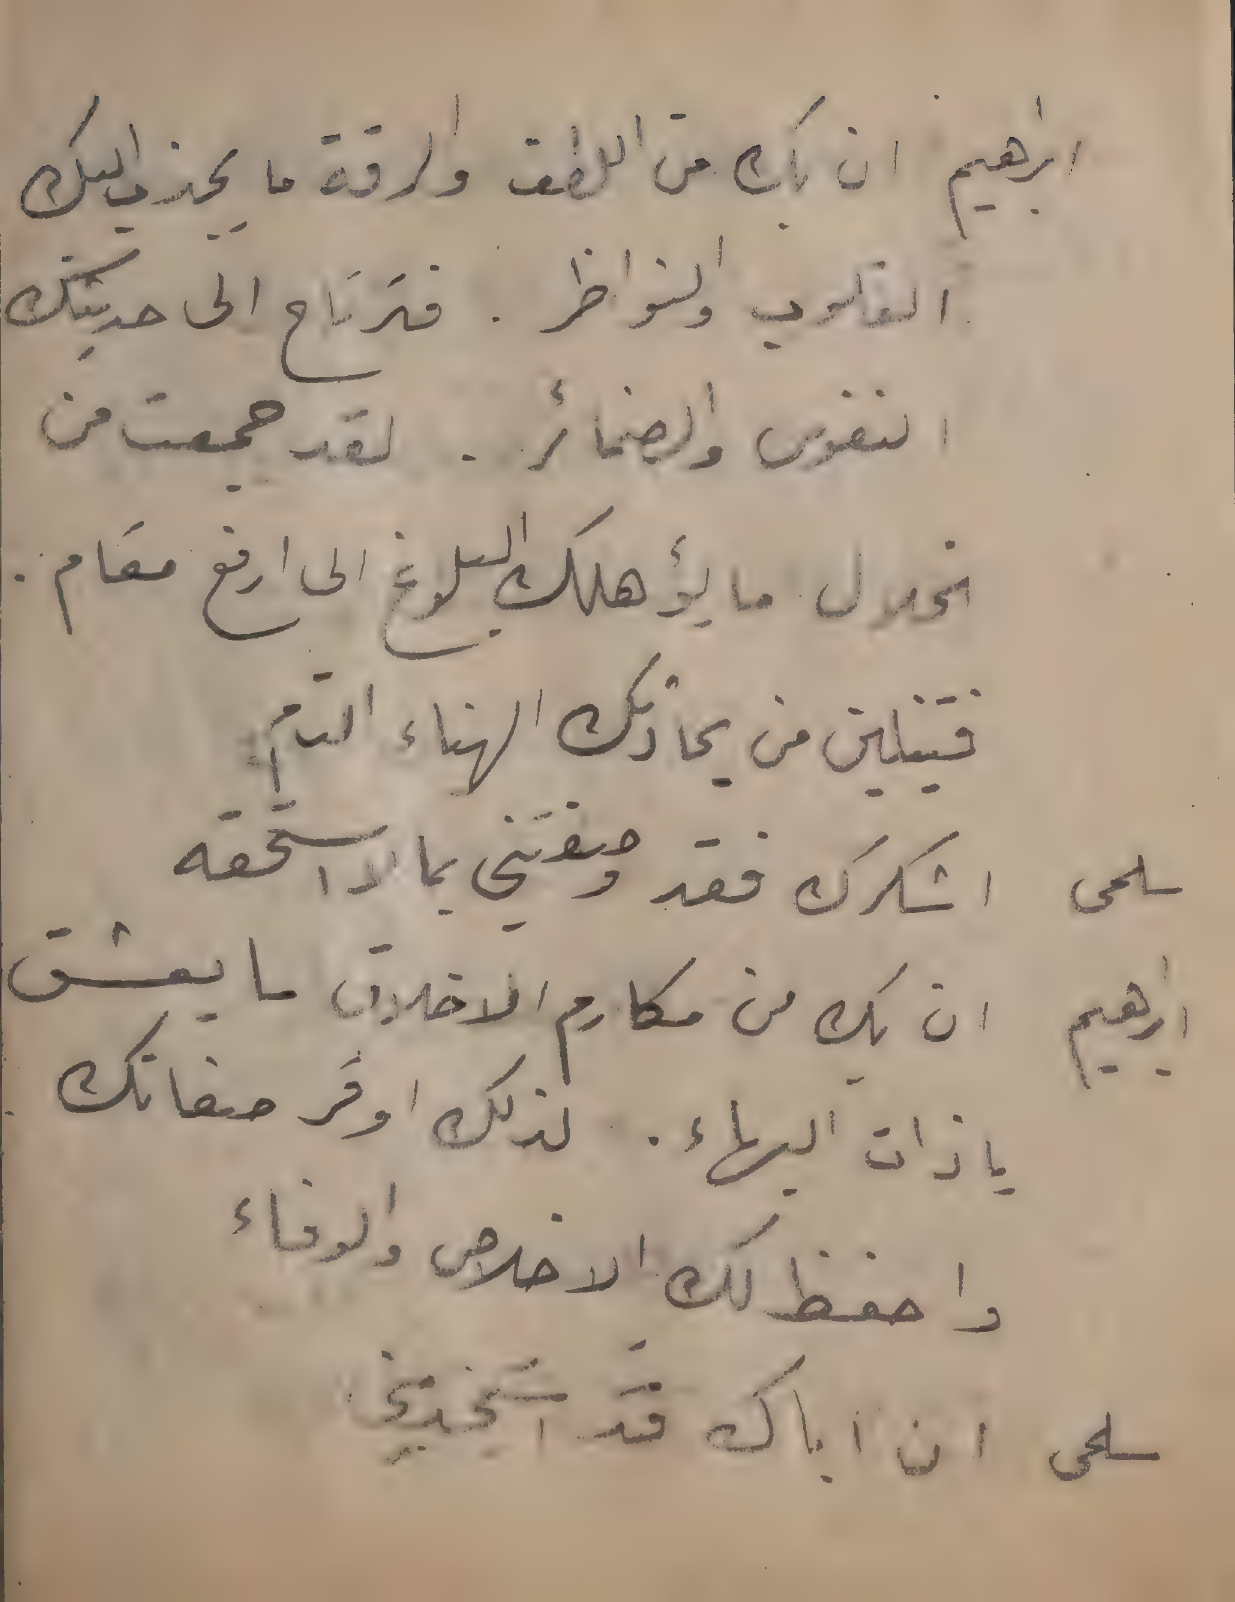 ابرهيم ان بك من اللطف والرقة ما يجذب اليك
القلوب والنواظر . فترتاح الى حديثك
النفوس والضمائر . لقد جمعت من
الخلال ما يؤهلك البلوغ الى ارفع مقام .
فتينلين من يحاذيك الهناء التام
سلمى اشكرك فقد وصفتني بما لا استحقه
ابرهيم ان بك من مكارم الاخلاق ما يعشق
يا ذات البهاء . لذلك اوقر صفاتك .
واحفظ لك الاخلاص والوفاء
سلمى ان اباك قد